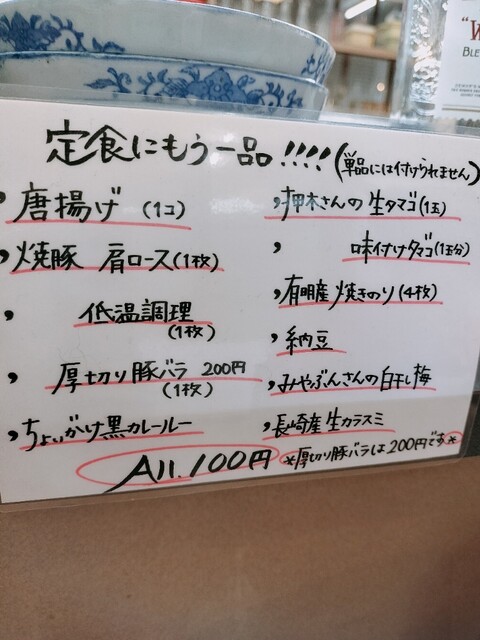 定食にもう一品!!!!(単品には付けられません)
, 唐揚げ (1コ)
, 焼豚 肩ロース(1枚)
, 低温調理
(1枚)
, 厚切り豚バラ 200円
(1枚)
, ちょいがけ黒カレールー
, 押木さんの生タマゴ(1玉)
, 味付けタマゴ(1玉分)
, 有明産焼きのり(4枚)
, 納豆
, みやぶんさんの白干し梅
, 長崎産生カラスミ
All.100円
*厚切り豚バラは200円です*
"W
BLE